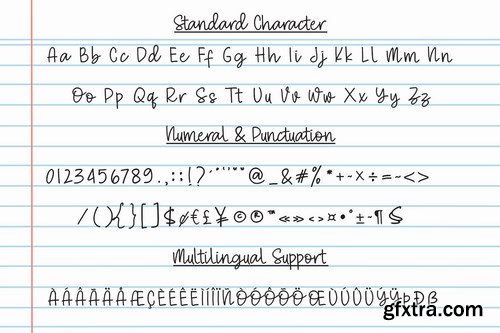 Standard Character
Aa Bb Cc Dd Ee Ff Gg Hh Ii Jj Kk Ll Mm Nn
Oo Pp Qq Rr Ss Tt Uu Vv Ww Xx Yy Zz
Numeral & Punctuation
0123456789.,:;!?
@_&#%*+-×÷=~<>
/(){}[]$¢€£¥©®™«»‹›¤•°±-¶§
Multilingual Support
ÀÁÂÃÄÅÆÇÈÉÊËÌÍÎÏÑØÒÓÔÕÖŒÙÚÛÜÝŸÞÐß
gfxtra.com